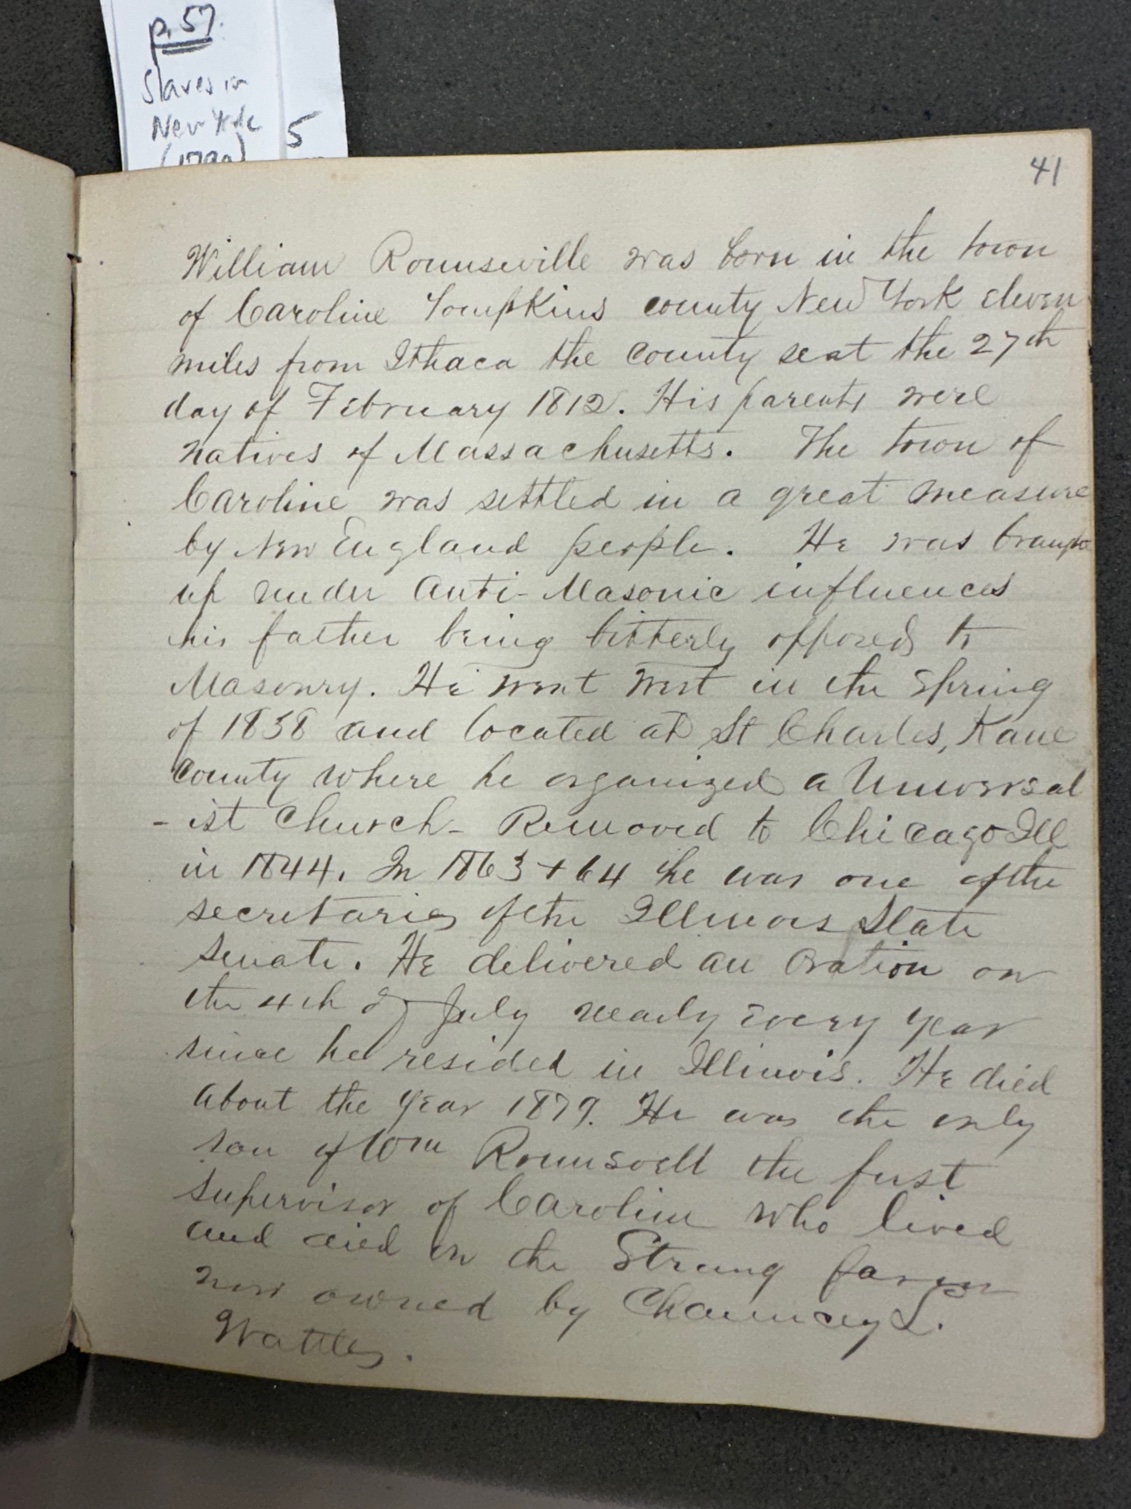 p. 57.
Slaves in
New York
(1790)
5
41
William Rounseville was born in the town
of Caroline Tompkins county New York eleven
miles from Ithaca the county seat the 27th
day of February 1812. His parents were
natives of Massachusetts. The town of
Caroline was settled in a great measure
by New England people. He was brought
up under Anti-Masonic influences
his father being bitterly opposed to
Masonry. He went West in the Spring
of 1838 and located at St Charles, Kane
County where he organized a Universal
-ist Church - Removed to Chicago Ill
in 1844. In 1863 + 64 he was one of the
secretaries of the Illinois State
Senate. He delivered an Oration on
the 4th of July nearly every year
since he resided in Illinois. He died
about the year 1879. He was the only
son of Wm Rounsvell the first
supervisor of Caroline who lived
and died on the Strang farm
now owned by Chauncey L.
Wattles.